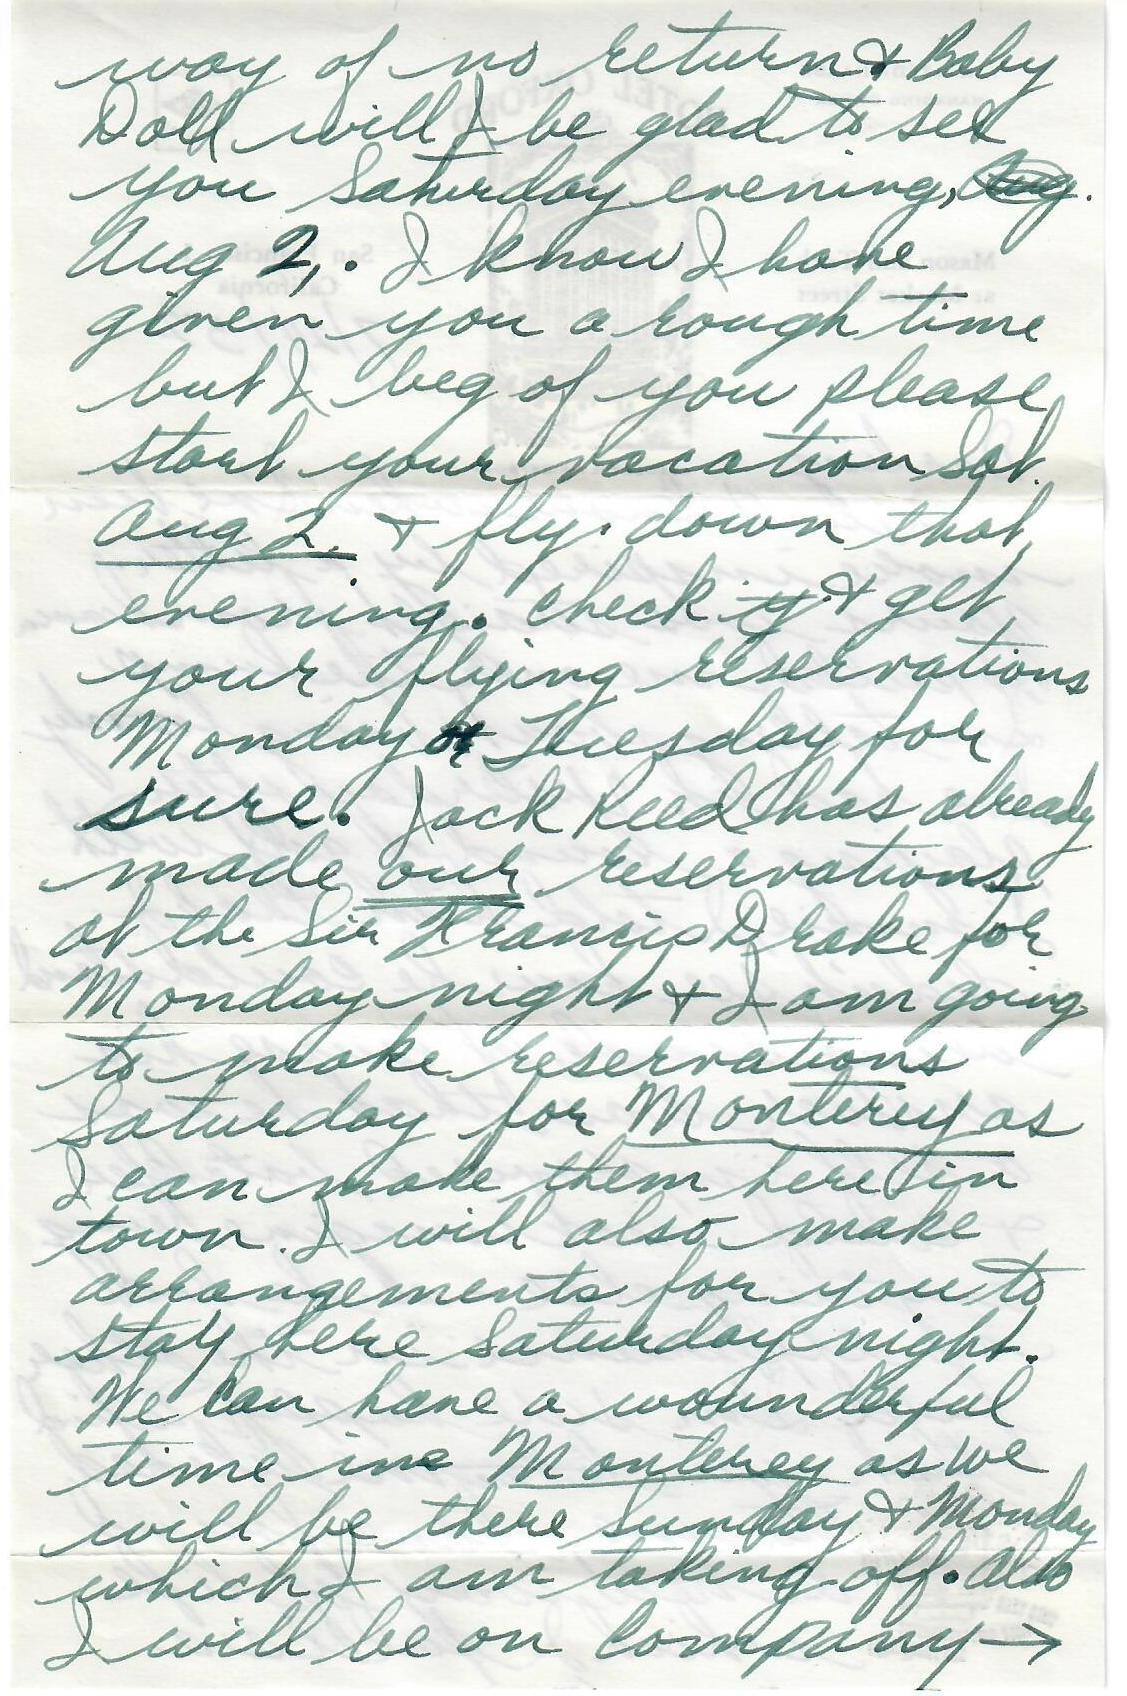 way of no return & Baby
Doll will I be glad to see
you Saturday evening, Aug.
Aug 2,. I know I have
given you a rough time
but I beg of you please
start your vacation Sat.
Aug 2. & fly down that
evening. Check & get
your flying reservations
Monday or Tuesday for
sure. Jack Reed has already
made our reservations
at the Sir Francis Drake for
Monday night & I am going
to make reservations
Saturday for Monterey as
I can make them here in
town. I will also make
arrangements for you to
stay here Saturday night.
We can have a wounderful
time in Monterey as we
will be there Sunday & Monday
which I am taking off. Also
I will be on Company →